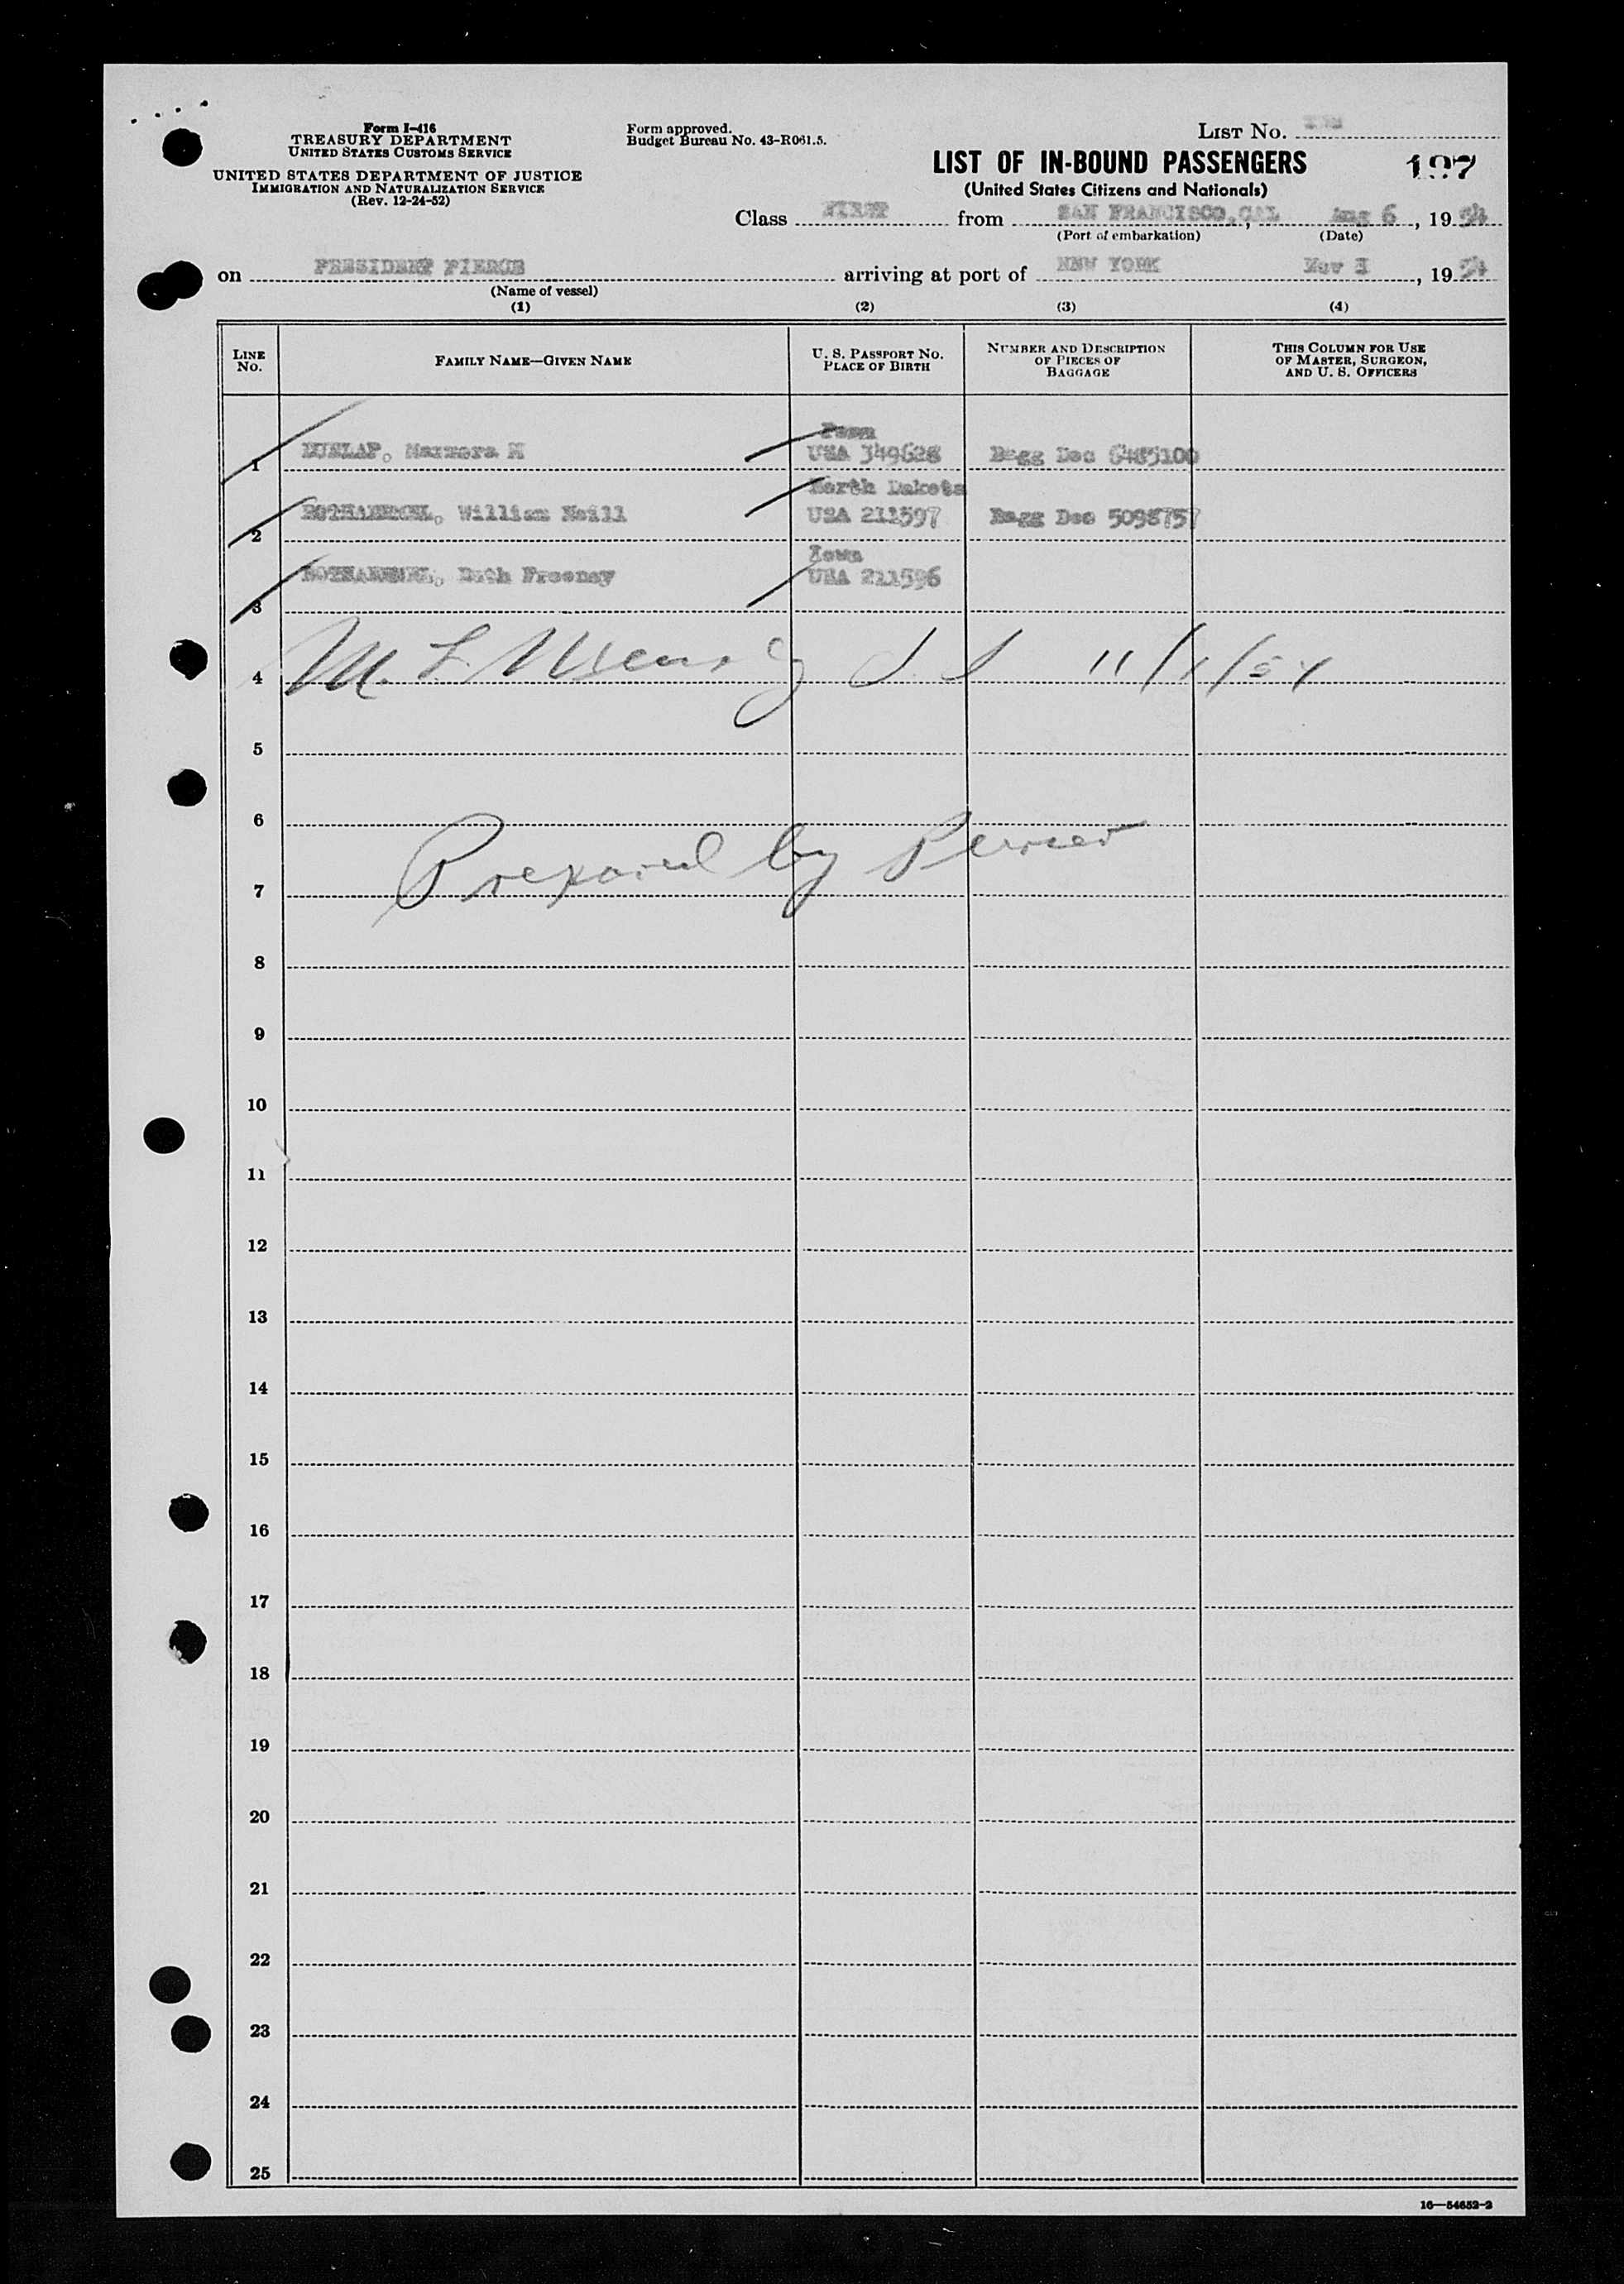 Form I-416
TREASURY DEPARTMENT
UNITED STATES CUSTOMS SERVICE
UNITED STATES DEPARTMENT OF JUSTICE
IMMIGRATION AND NATURALIZATION SERVICE
(Rev. 12-24-52)
Form approved.
Budget Bureau No. 43-R061.5.
LIST NO.
LIST OF IN-BOUND PASSENGERS
(United States Citizens and Nationals)
197
Class FIRST from SAN FRANCISCO, CAL, Aug 6, 1954
(Port of embarkation) (Date)
on PRESIDENT PIERCE arriving at port of NEW YORK Nov, 1954
(Name of vessel)
(1) (2) (3) (4)
LINE NO. FAMILY NAME—GIVEN NAME U. S. PASSPORT NO. PLACE OF BIRTH NUMBER AND DESCRIPTION OF PIECES OF BAGGAGE THIS COLUMN FOR USE OF MASTER, SURGEON, AND U. S. OFFICERS
Penn
1 DUNLAP, M USA 349628 Bagg Dec 6485100
North Dakota
2 William Neill USA 211597 Bagg Dec 5098757
Iowa
3 Freeney USA 211596
4 M. L. 11/1/54
5
6
Prepared by Purser
7
8
9
10
11
12
13
14
15
16
17
18
19
20
21
22
23
24
25
16—54652-2